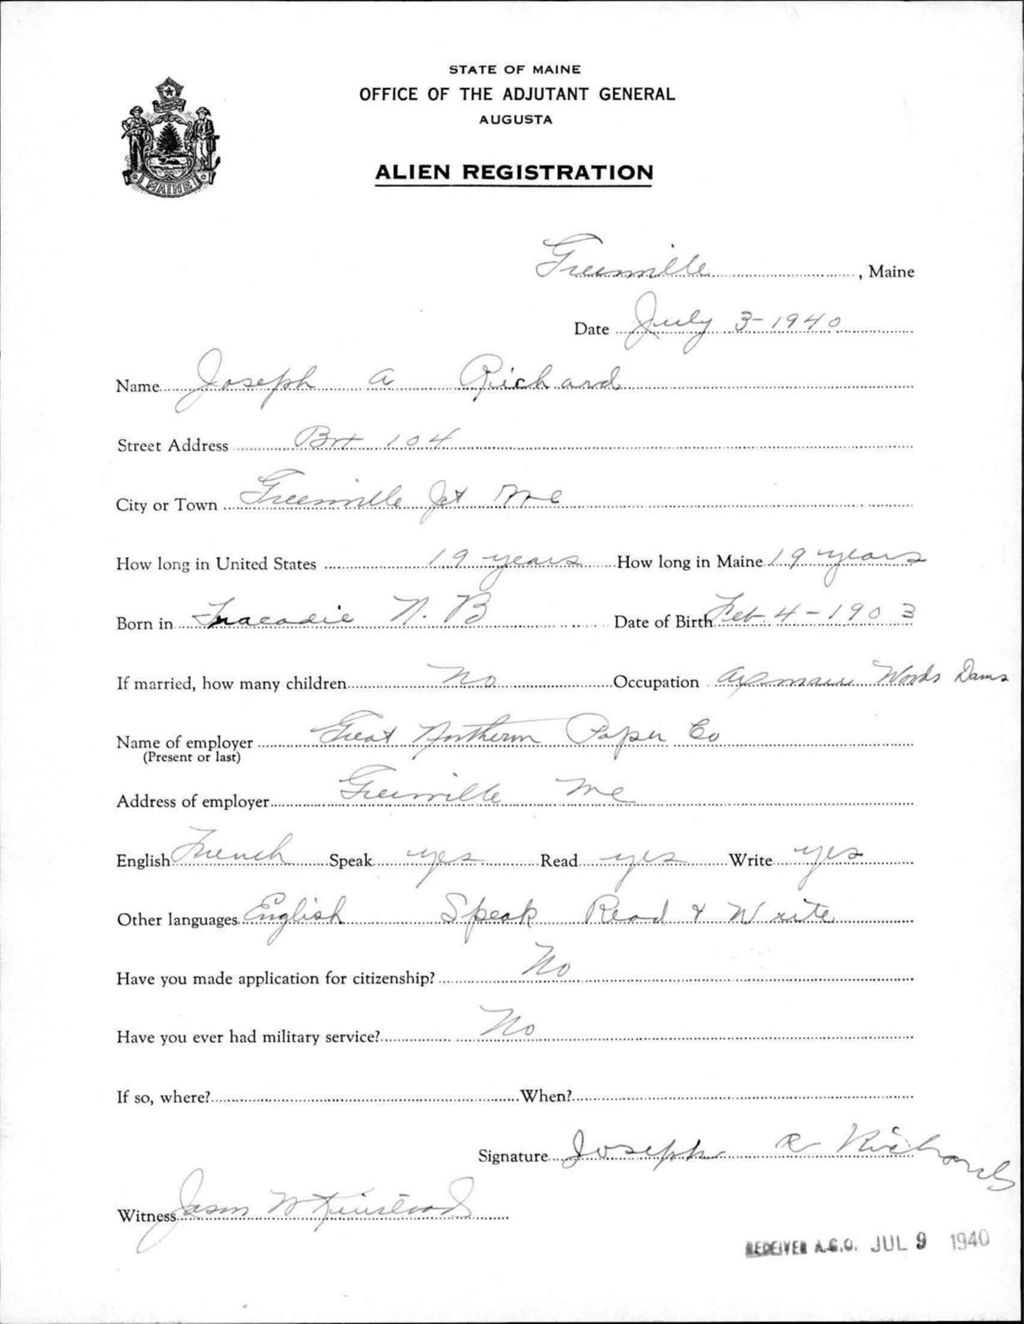 STATE OF MAINE
OFFICE OF THE ADJUTANT GENERAL
AUGUSTA
ALIEN REGISTRATION
MAINE
Greenville, Maine
Date July 3-1940
Name Joseph A Richard
Street Address Box 104
City or Town Greenville Jct Me
How long in United States 19 years How long in Maine 19 years
Born in Tracadie N. B Date of Birth Feb 4-1903
If married, how many children No Occupation Woods Dams
Name of employer Great Northern Paper Co
(Present or last)
Address of employer Greenville Me
English French Speak yes Read yes Write yes
Other languages English Speak Read & Write
Have you made application for citizenship? No
Have you ever had military service? No
If so, where? When?
Signature Joseph A Richard
Witness Jason W
RECEIVED A.G.O. JUL 9 1940